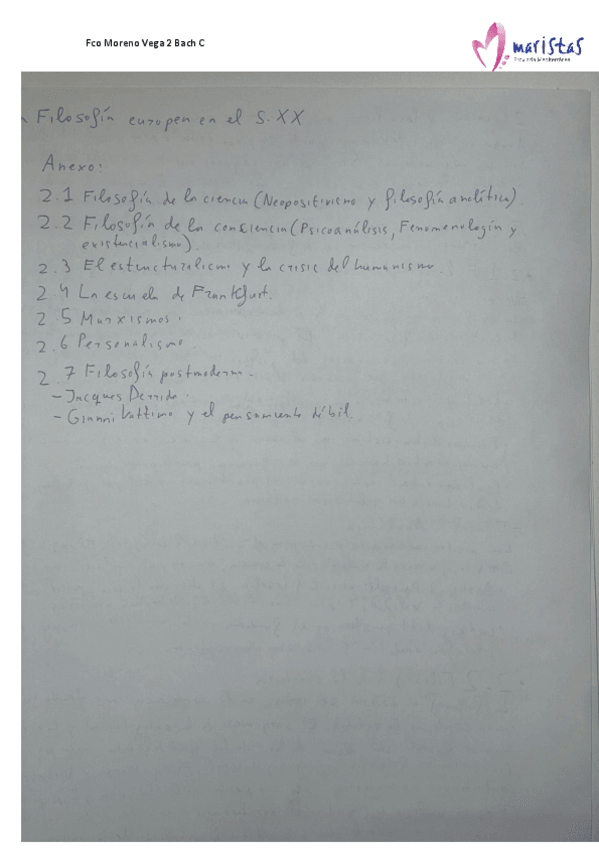 Fco Moreno Vega 2 Bach C
maristas
Filosofía europea en el S. XX
Anexo:
2.1 Filosofía de la ciencia (Neopositivismo y filosofía analítica).
2.2 Filosofía de la consciencia (Psicoanálisis, Fenomenología y
existencialismo).
2.3 El estructuralismo y la crisis del humanismo.
2.4 La escuela de Frankfurt.
2.5 Marxismos.
2.6 Personalismo.
2.7 Filosofía postmoderna.
- Jacques Derrida.
- Gianni Vattimo y el pensamiento débil.